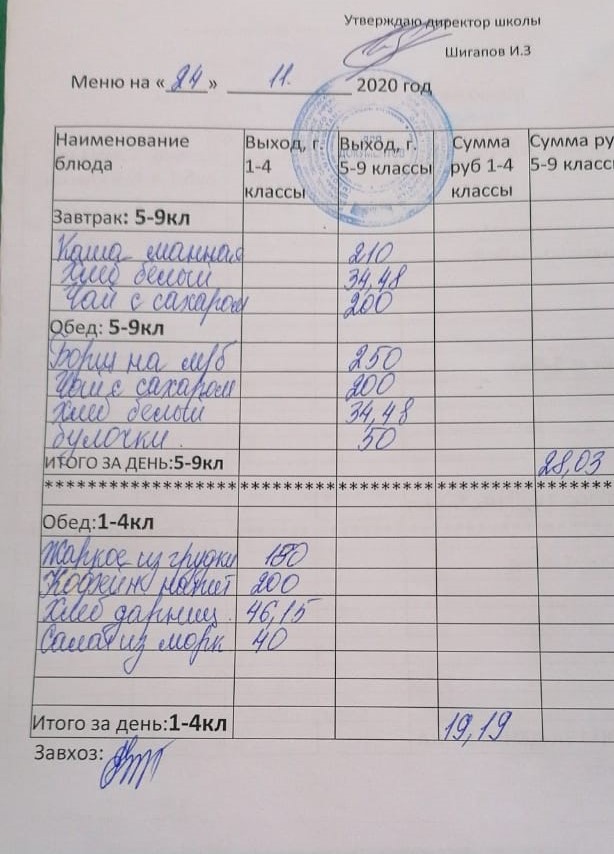 Утверждаю директор школы
Шигапов И.З
Меню на « 24 » 11. 2020 год
Наименование блюда Выход, г. 1-4 классы Выход, г. 5-9 классы Сумма руб 1-4 классы Сумма ру 5-9 класс
Завтрак: 5-9кл
Каша манная 210
Хлеб белый 34,48
Чай с сахаром 200
Обед: 5-9кл
Борщ на м/б 250
Чай с сахаром 200
Хлеб белый 34,48
булочки. 50
ИТОГО ЗА ДЕНЬ:5-9кл 28,03
****************************************************
Обед:1-4кл
Жаркое из грудки 150
Кофейн напит 200
Хлеб дарниц. 46,15
Салат из морк 40
Итого за день:1-4кл 19,19
Завхоз: